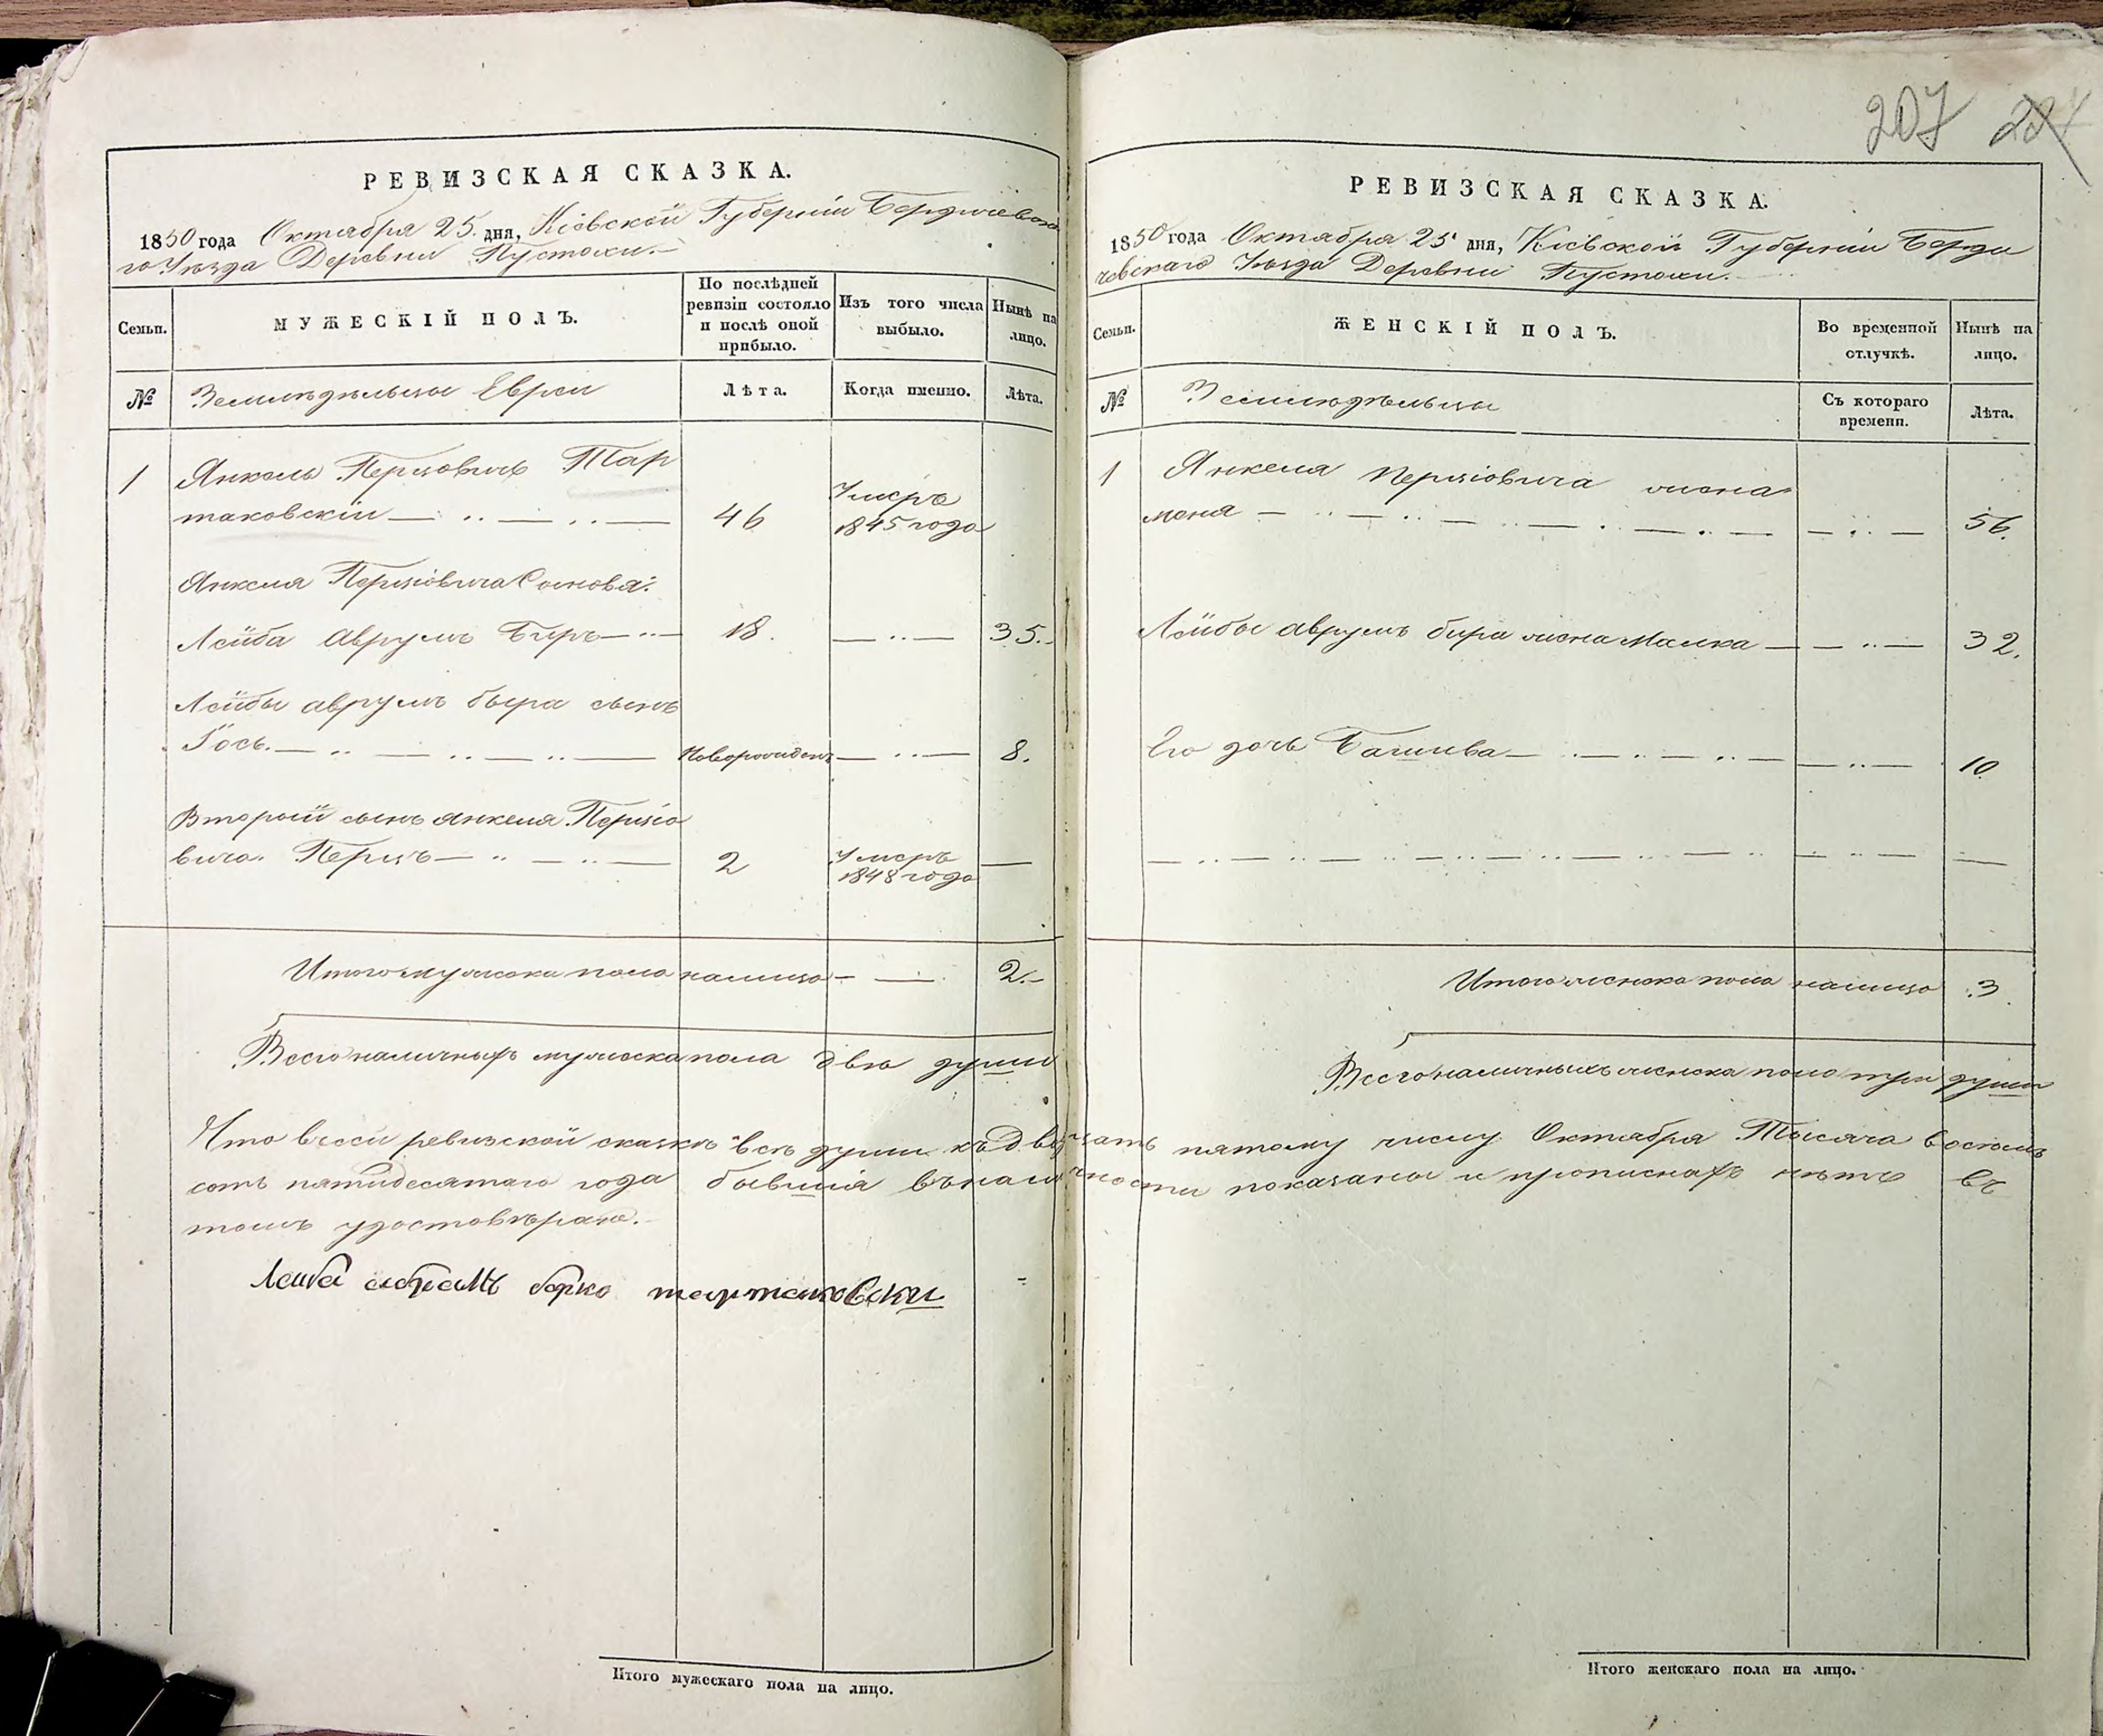 207 224
РЕВИЗСКАЯ СКАЗКА.
1850 года Октября 25. дня, Кіевской Губерніи Бердичевска
го Уѣзда Деревни Пустохи.
Семьи.
МУЖЕСКІЙ ПОЛЪ.
По послѣдней
ревизіи состояло
и послѣ оной
прибыло.
Изъ того числа
выбыло.
Нынѣ на
лицо.
№
Земледѣльцы Евреи
Лѣта.
Когда именно.
Лѣта.
1 Янкель Перцовичъ Тар
таковскій 46 Умеръ
1845 года
Янкеля Перціовича Сыновья:
Лейба Аврумъ Биръ 18. 35.
Лейбы Аврумъ бира сынъ
Іось. Новорожденъ 8.
Второй сынъ Янкеля Перціо
вича. Перцъ 2 Умеръ
1848 года
Итого мужска пола налицо 2.
Всего наличныхъ мужска пола двѣ души
РЕВИЗСКАЯ СКАЗКА.
1850 года Октября 25 дня, Кіевской Губерніи Берди
чевскаго Уѣзда Деревни Пустохи.
Семьи.
ЖЕНСКІЙ ПОЛЪ.
Во временной
отлучкѣ.
Нынѣ на
лицо.
№
Земледѣльцы
Съ котораго
времени.
Лѣта.
1 Янкеля Перціовича жена
56.
Лейбы Аврумъ бира жена Малка 32.
Его дочь Башива 10
Итого женска пола налицо 3
Всего наличныхъ женска пола три души
Что въ сей ревизской сказкѣ всѣ души къ двадцать пятому числу Октября Тысяча восемь
сотъ пятидесятаго года бывшія въ наличности показаны и прописныхъ нѣтъ въ
томъ удостовѣряю.
Лейба абрамъ берко тартаковски
Итого мужескаго пола на лицо.
Итого женскаго пола на лицо.